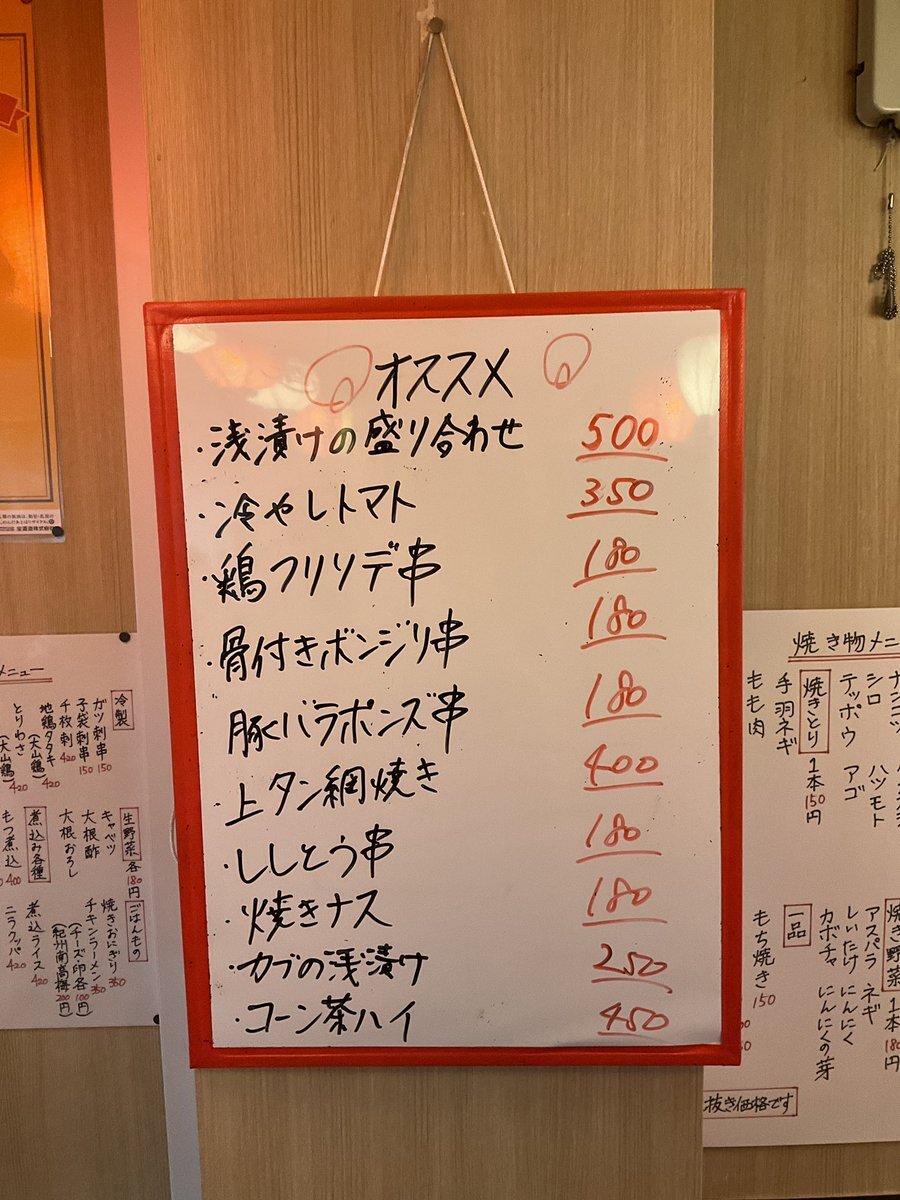 オススメ
・浅漬けの盛り合わせ 500
冷やしトマト 350
・鶏フリソデ串 180
・骨付きボンジリ串 180
豚バラポンズ串 180
上タン網焼き 400
・ししとう串 180
・焼きナス 180
・カブの浅漬け 250
・コーン茶ハイ 450
メニュー
冷製
ガツ刺串 150
子袋刺串 150
千枚刺 420
地鶏タタキ
(大山鶏) 420
とりわさ
(大山鶏) 420
生野菜 各180円
キャベツ
大根酢
大根おろし
煮込み各種
もつ煮込 400
ごはんもの
焼きおにぎり 350
チキンラーメン 350
(チーズ・卵各100円)
(紀州南高梅200円)
煮込ライス 420
ニラクッパ 420
焼き物メニ
シロ ハツモト
テッポウ アゴ
焼きとり 1本150円
手羽ネギ
もも肉
焼き野菜 1本180円
アスパラ ネギ
しいたけ にんにく
カボチャ にんにくの芽
一品
もち焼き 150
抜き価格です